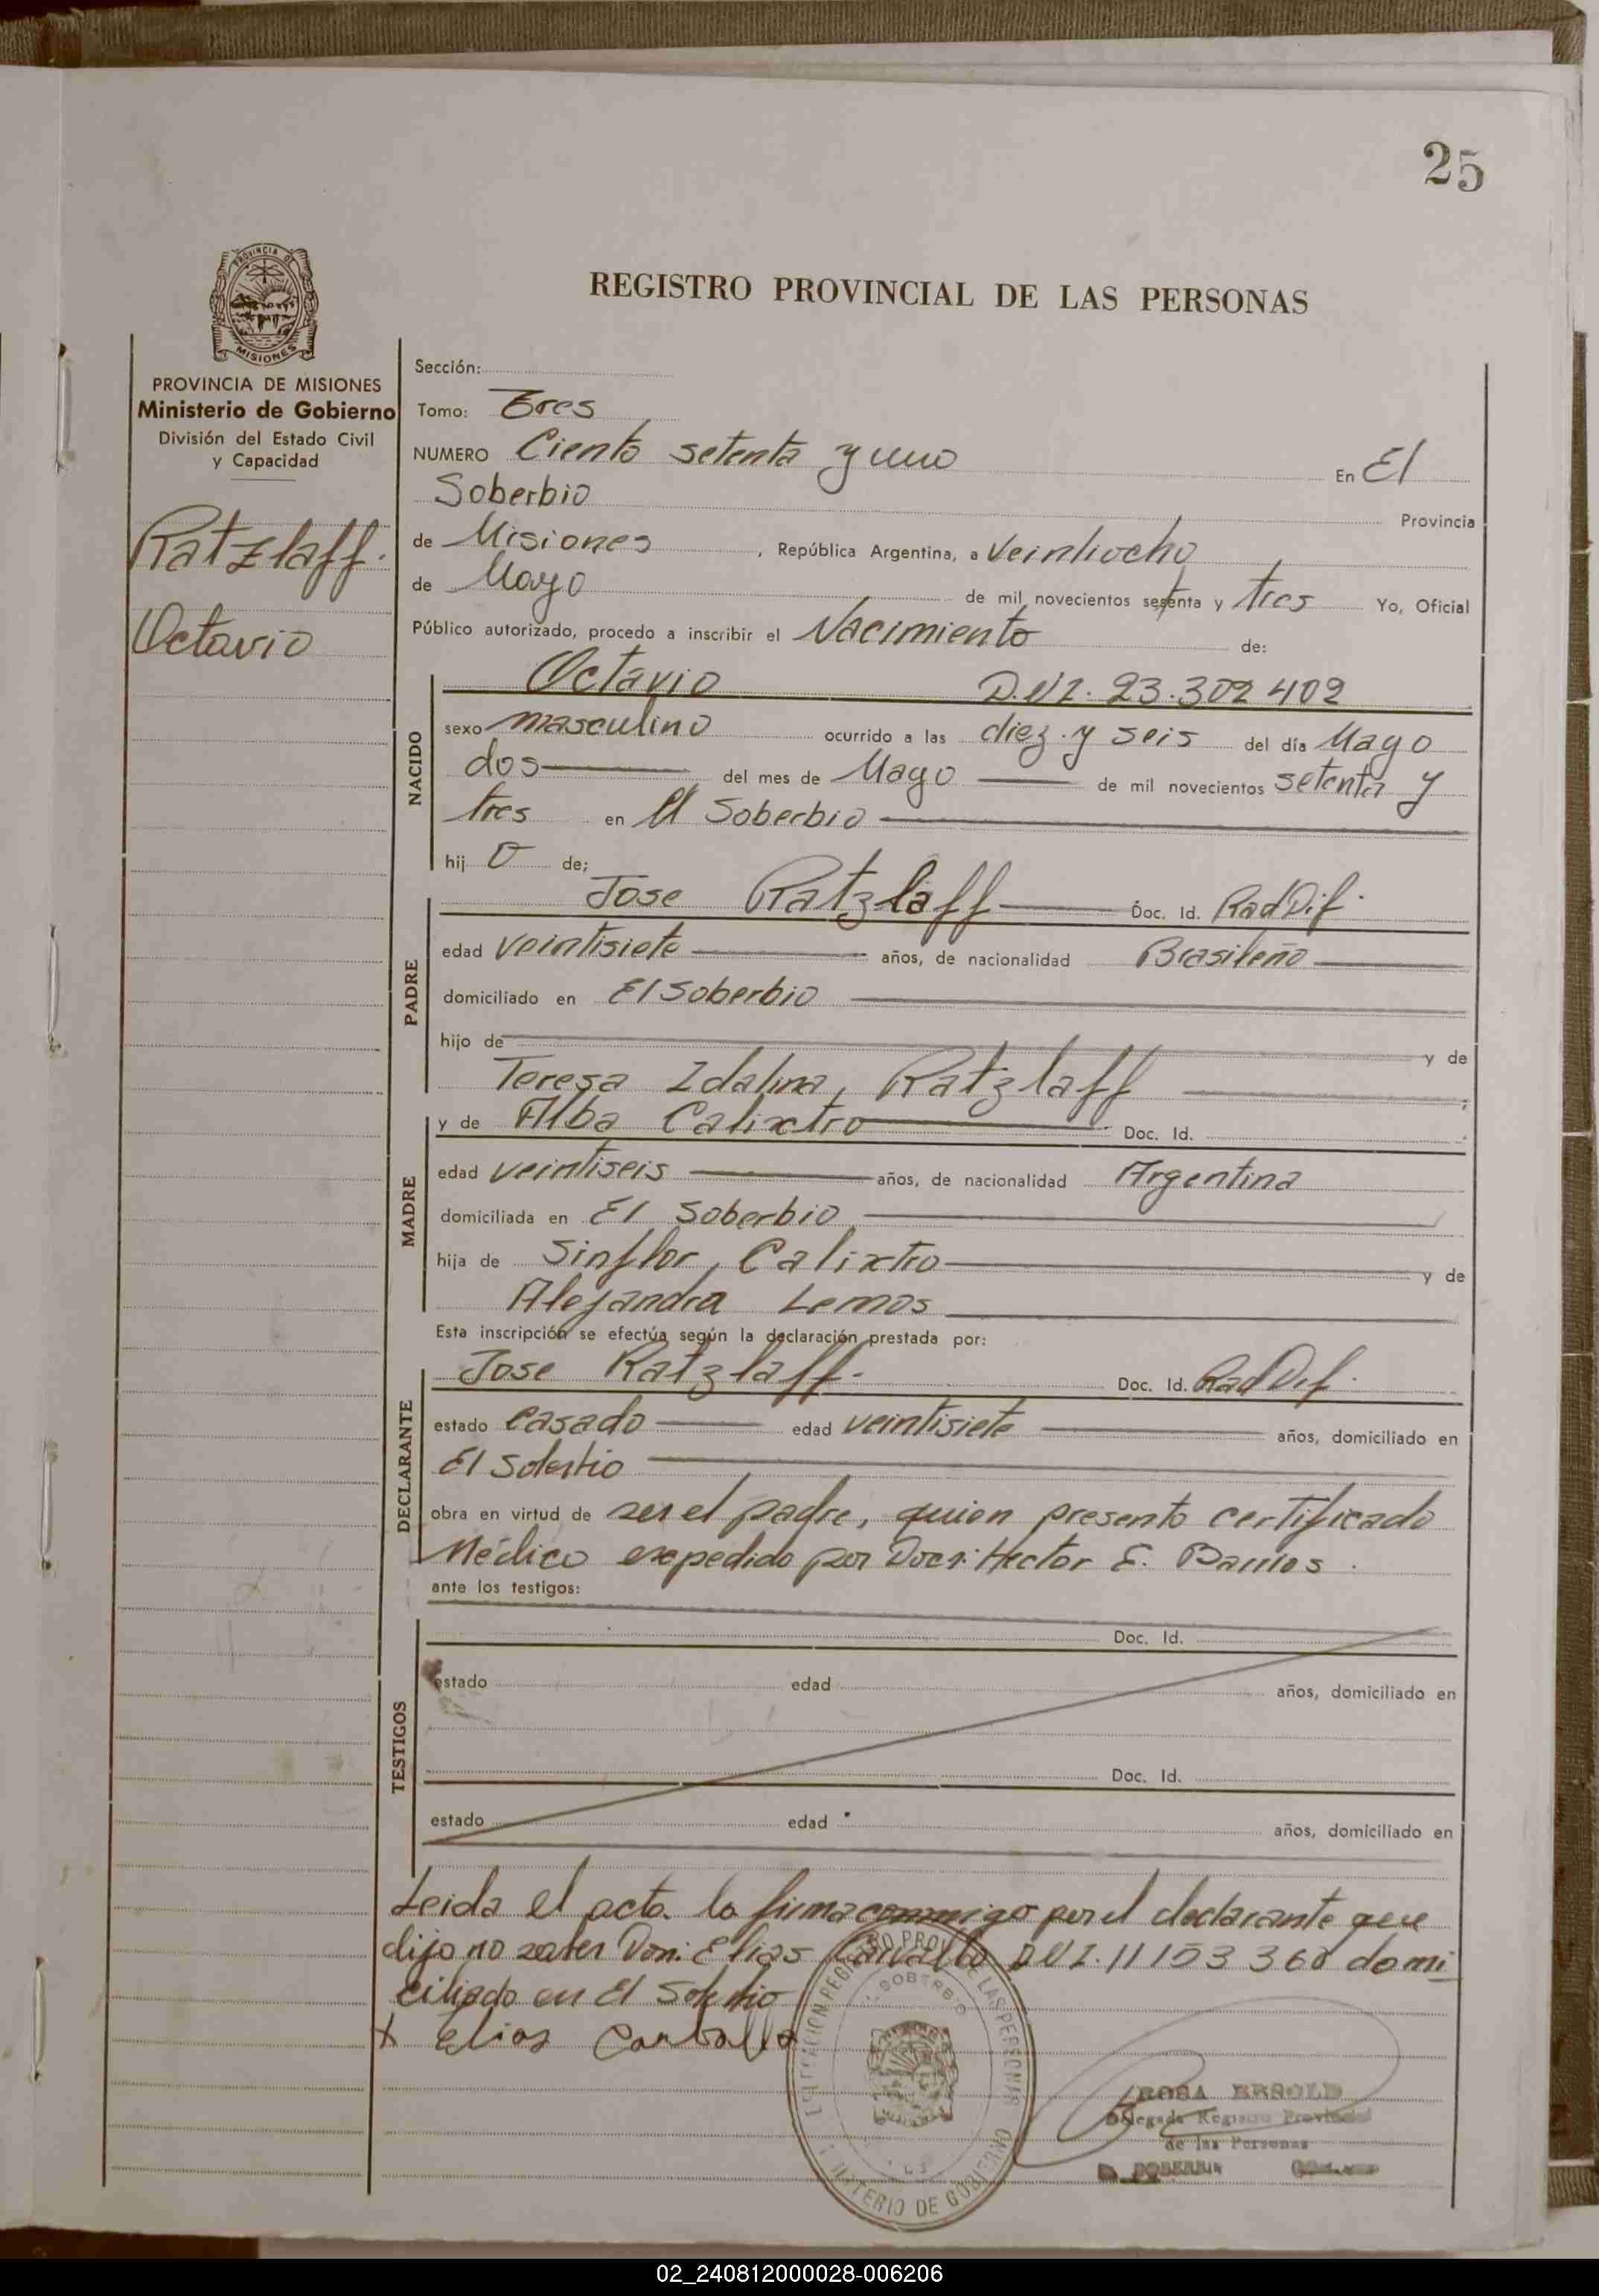 25
PROVINCIA DE
MISIONES
REGISTRO PROVINCIAL DE LAS PERSONAS
PROVINCIA DE MISIONES
Ministerio de Gobierno
División del Estado Civil
y Capacidad
Ratzlaff.
Octavio
Sección:
Tomo: Tres
NUMERO Ciento setenta y uno En El
Soberbio Provincia
de Misiones, República Argentina, a Veintiocho
de Mayo de mil novecientos setenta y tres Yo, Oficial
Público autorizado, procedo a inscribir el Nacimiento de:
NACIDO
Octavio D.N.I. 23.302 402
sexo masculino ocurrido a las diez y seis del día Mayo
dos del mes de Mayo de mil novecientos setenta y
tres en El Soberbio
hij o de;
PADRE
Jose Ratzlaff Doc. Id. Rad Dif.
edad veintisiete años, de nacionalidad Brasileño
domiciliado en El Soberbio
hijo de y de
Teresa Idalina, Ratzlaff ;
MADRE
y de Alba Calixtro Doc. Id.
edad veintiseis años, de nacionalidad Argentina
domiciliada en El Soberbio
hija de Sinflor, Calixtro y de
Alejandra Lemos
Esta inscripción se efectúa según la declaración prestada por:
DECLARANTE
Jose Ratzlaff. Doc. Id. Rad Dif.
estado casado edad veintisiete años, domiciliado en
El Soberbio
obra en virtud de ser el padre, quien presento certificado
Médico expedido por Doc: Hector E. Barrios.
ante los testigos:
TESTIGOS
Doc. Id.
estado edad años, domiciliado en
Doc. Id.
estado edad años, domiciliado en
Leida el acta la firma conmigo por el declarante que
dijo no saber Don: Elias Carvallo DNI. 11 153 360 domi
ciliado en El Soberbio
x Elias Carvallo
DELEGACION REGISTRO PROV. DE LAS PERSONAS
EL SOBERBIO
MINISTERIO DE GOBIERNO
ROSA
Delegada Registro Provincial
de las Personas
02_240812000028-006206